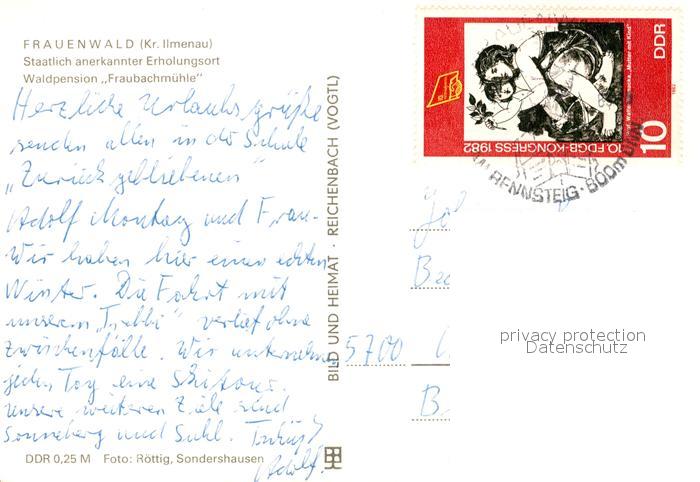 FRAUENWALD (Kr. Ilmenau)
Staatlich anerkannter Erholungsort
Waldpension „Fraubachmühle"
Herzliche Urlaubsgrüße
senden allen in der Schule
„Zurückgebliebenen"
Adolf Montag und Frau.
Wir haben hier einen echten
Winter. Die Fahrt mit
unserem „Trabbi" verlief ohne
Zwischenfälle. Wir unternehmen
jeden Tag eine Skitour.
Unsere weiteren Ziele sind
Sonneberg und Suhl. Tschüß
Adolf.
DDR 0,25 M Foto: Röttig, Sondershausen
BILD UND HEIMAT · REICHENBACH (VOGTL)
DDR
10
10. FDGB-KONGRESS 1982
"Mutter mit Kind"
1982
AM RENNSTEIG · 600m
5700
B
privacy protection
Datenschutz